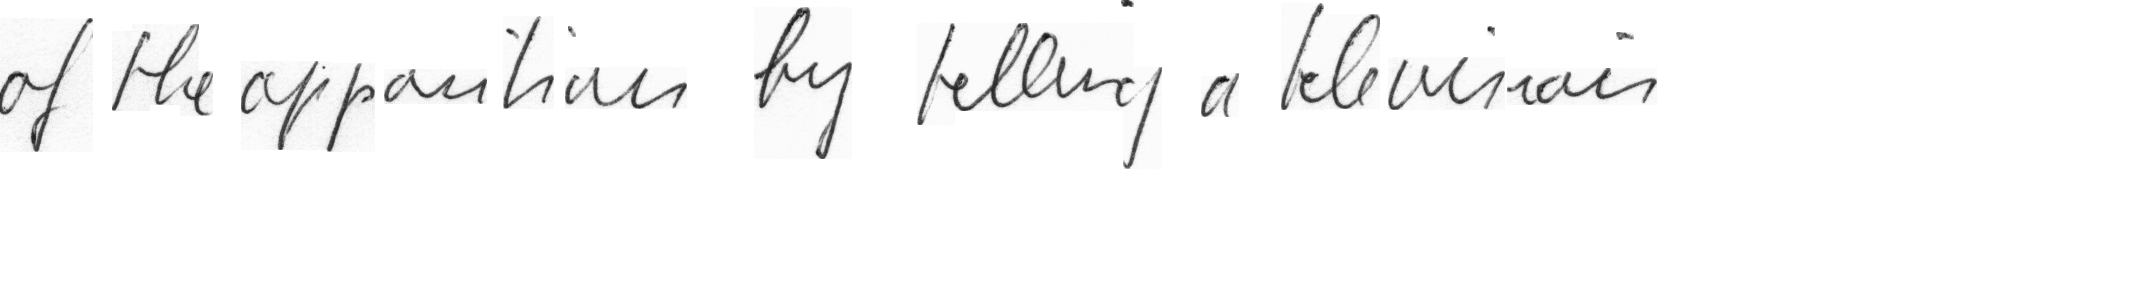 of the opposition by telling a television